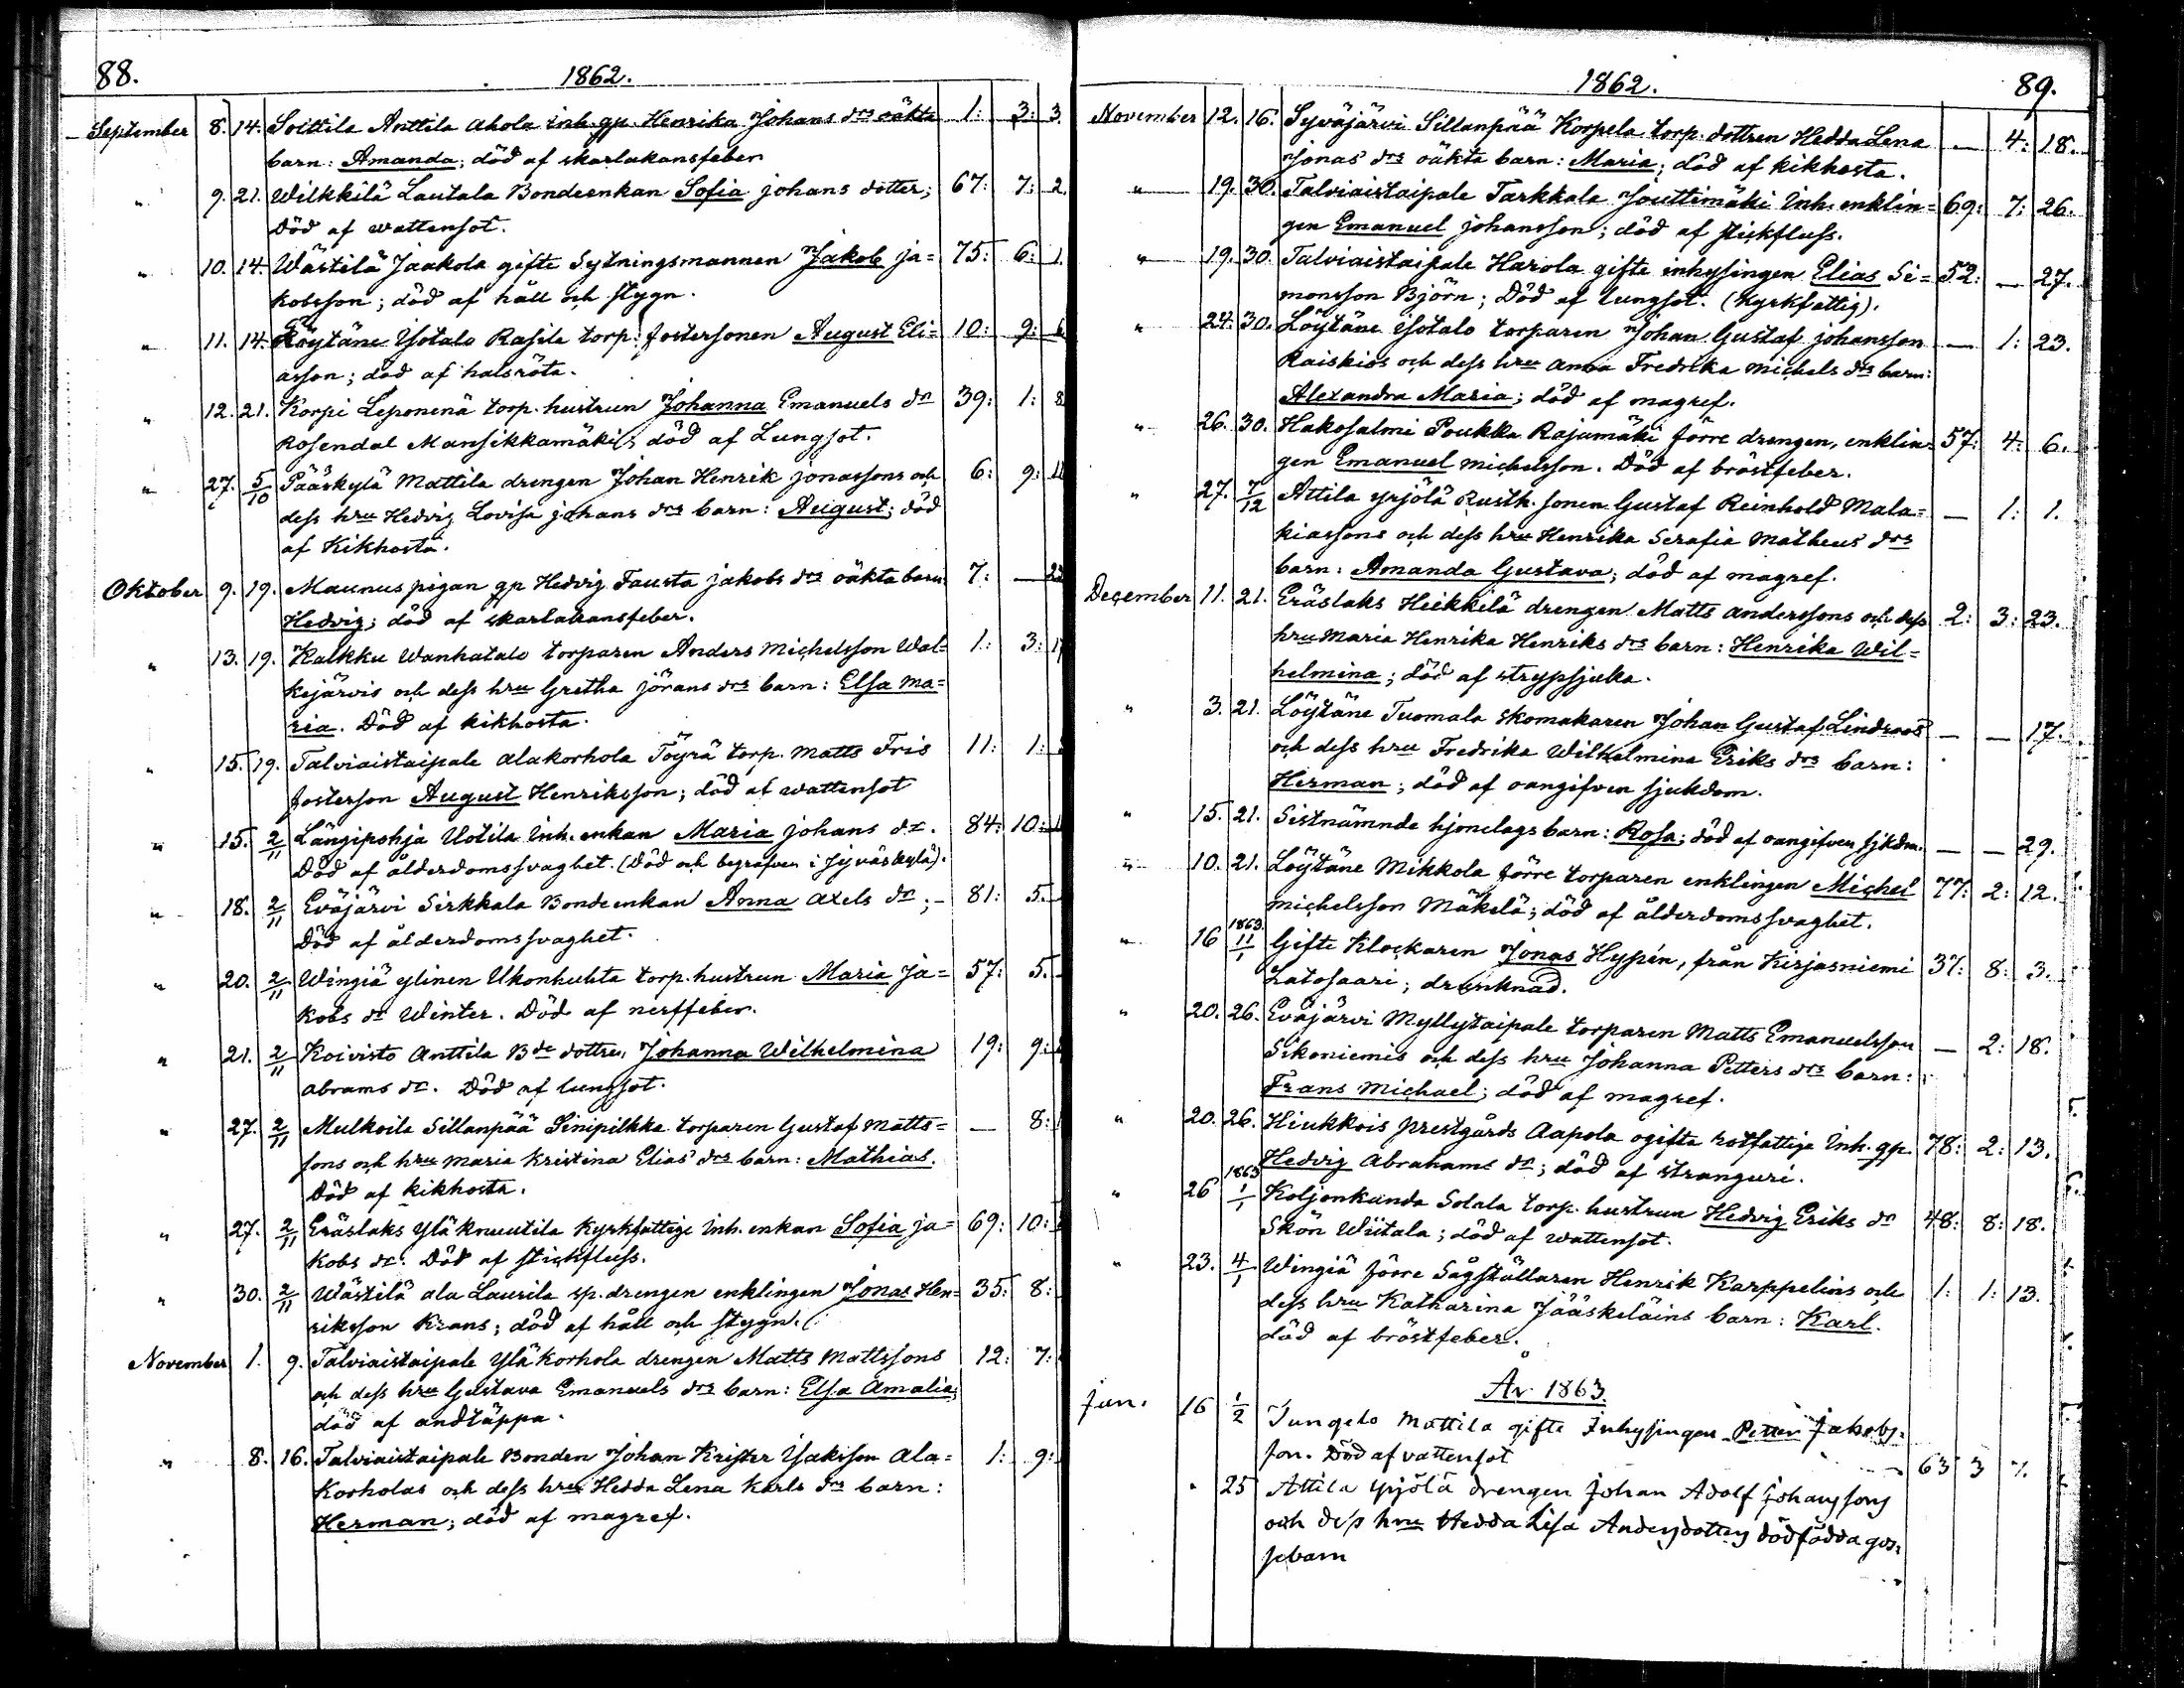 88.
1862.
September 8. 14. Soittila Anttila Ahola inh. gp. Henrika Johans drs oäkta 1: 3: 3.
barn: Amanda; död af skarlakansfeber
" 9. 21. Wilkkilä Lautala Bondeenkan Sofia johans dotter; 67: 7: 2.
Död af wattensot.
" 10. 14. Wästilä Jaakola gifte Sytningsmannen Jakob ja= 75: 6: 1.
kobsson; död af håll och stygn.
" 11. 14. Löytäne Isotalo Rasila torp. fostersonen August Eli= 10: 9: 6
asson; död af halsröta.
" 12. 21. Korpi Leponenä torp. hustrun Johanna Emanuels dr 39: 1: 8
Rosendal Mansikkamäki; död af Lungsot.
" 27. 5/10 Pääskylä Mattila drengen Johan Henrik jonassons och 6: 9:
dess hru Hedvig Lovisa johans drs barn: August; död
af Kikhosta.
Oktober 9. 19. Maunus pigan gp Hedvig Fausta jakobs drs oäkta barn 7: — 23
Hedvig; död af skarlakansfeber.
" 13. 19. Kalkku Wanhatalo torparen Anders Michelsson Wal= 1: 3: 17
kejärvis och dess hru Gretha jörans drs barn: Elsa Ma=
ria. Död af kikhosta.
" 15. 19. Talviaistaipale Alakorhola Töyrä torp. Matts Fris 11: 1:
fosterson August Henriksson; död af wattensot
" 15. 2/11 Längipohja Uotila Inh. enkan Maria johans dr. 84: 10:
Död af ålderdomssvaghet. (Död och begrafven i Jyväskylä).
" 18. 2/11 Eväjärvi Sirkkala Bondeenkan Anna Axels dr;— 81: 5.
Död af ålderdomssvaghet.
" 20. 2/11 Wingiä ylinen Ukonhuhta torp. hustrun Maria Ja= 57: 5.
kobs dr Winter. Död af nerffeber.
" 21. 2/11 Koivisto Anttila Bde dottren, Johanna Wilhelmina 19: 9:
abrams dr. Död af lungsot.
" 27. 2/11 Mulkoila Sillanpää Sinipilkka torparen Gustaf Matts= — 8:
sons och hru Maria Kristina Elias drs barn: Mathias.
Död af kikhosta.
" 27. 2/11 Eräslaks Yläknuutila Kyrkfattige Inh. enkan Sofia ja= 69: 10:
kobs dr. Död af stickfluss.
" 30. 2/11 Wästilä ala Laurila sp. drengen enklingen Jonas Hen= 35: 8:
riksson Krans; död af håll och stygn.
November 1. 9. Talviaistaipale Yläkorhola drengen Matts Mattssons 12: 7:
och dess hru Gustava Emanuels drs barn: Elsa Amalia;
död af andtäppa.
" 8. 16. Talviaistaipale Bonden Johan Krister Isaksson Ala= 1: 9:
Korholas och dess hru Hedda Lena Karls drs barn:
Herman; död af magref.
1862.
89.
November 12. 16. Syväjärvi Sillanpää Korpela torp. dottren Hedda Lena — 4: 18.
Jonas drs oäkta barn: Maria; död af kikhosta.
" 19. 30. Talviaistaipale Tarkkala Jouttimäki Inh. enklin= 69: 7: 26.
gen Emanuel johansson; död af stickfluss.
" 19. 30. Talviaistaipale Harola gifte inhysingen Elias Si= 52: — 27.
monsson Björn; Död af lungsot. (Kyrkfattig).
" 24. 30. Löytäne Isotalo torparen Johan Gustaf johansson — 1: 23.
Raiskios och dess hru Anna Fredrika Michels drs barn:
Alexandra Maria; död af magref.
" 26. 30. Hakosalmi Poukka Rajamäki förre drengen, enklin= 57: 4: 6.
gen Emanuel Michelsson. Död af bröstfeber.
" 27. 7/12 Attila yrjölä Rusth. sonen Gustaf Reinhold Mala= — 1: 1.
kiassons och dess hru Henrika Serafia Matheus drs
barn: Amanda Gustava; död af magref.
December 11. 21. Eräslaks Heikkilä drengen Matts Anderssons och dess 2: 3: 23.
hru Maria Henrika Henriks drs barn: Henrika Wil=
helmina; död af strypsjuka.
" 3. 21. Löytäne Tuomala skomakaren Johan Gustaf Lindroos — — 17.
och dess hru Fredrika Wilhelmina Eriks drs barn:
Herman; död af oangifven sjukdom.
" 15. 21. Sistnämnde hjonelags barn: Rosa; död af oangifven sjkdm. — — 29.
" 10. 21. Löytäne Mikkola förre torparen enklingen Michel 77: 2: 12.
Michelsson Mäkelä; död af ålderdomssvaghet.
" 16 1863. 11/1 Gifte Klockaren Jonas Hypén, från Kirjasniemi 37: 8: 3.
Latosaari; drunknad.
" 20. 26. Eväjärvi Myllytaipale torparen Matts Emanuelsson — 2: 18.
Sikoniemis och dess hru Johanna Petters drs barn:
Frans Michael; död af magref.
" 20. 26. Hiukkois prestgårds Aapola ogifta rotfattige Inh. gp. 78: 2: 13.
Hedvig Abrahams dr; död af stranguri.
" 26 1863 1/1 Koljonkanda Solala torp. hustrun Hedvig Eriks dr 48: 8: 18.
Skön Wiitala; död af wattensot.
" 23. 4/1 Wingiä förre Sågställaren Henrik Karppelins och 1: 1: 13.
dess hru Katharina Jääskeläins barn: Karl.
död af bröstfeber.
År 1863
Jan. 16 1/2 Jungelo Mattila gifte Inhysingen Petter Jakobs=
son. Död af vattensot 63 3 7.
" 25 Attila yrjölä drengen Johan Adolf Johanssons
och dess hru Hedda Lisa Andersdotters dödfödda gos=
sebarn